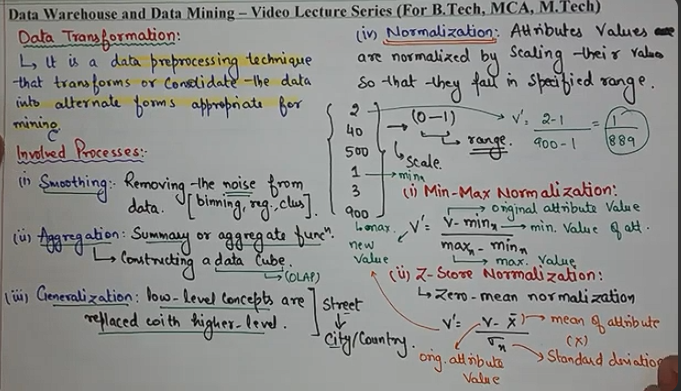 Data Warehouse and Data Mining – Video Lecture Series (For B.Tech, MCA, M.Tech)
Data Transformation:
↳ It is a data preprocessing technique
that transforms or consolidate the data
into alternate forms appropriate for
mining.
Involved Processes:-
(i) Smoothing:- Removing the noise from
data. [binning, reg., clus].
(ii) Aggregation: Summary or aggregate funcⁿ.
↳ Constructing a data cube.
↳ (OLAP)
(iii) Generalization: low-level concepts are
replaced with higher-level.
Street
↓
City/Country.
(iv) Normalization: Attributes Values
are normalized by scaling their values
so that they fall in specified range.
2
40
500
1 → minₙ
3
900
↳ max.
→ (0-1)
↳ range.
↳ scale.
v' = 2-1 / 900-1 = 1 / 889
(i) Min-Max Normalization:
→ original attribute value
v' = v - minₙ / maxₙ - minₙ
→ min. value of att.
↳ max. value
new
value
(ii) Z-Score Normalization:
↳ Zero-mean normalization
v' = v - x̄ / σₙ
→ mean of attribute
(x)
→ Standard deviation
orig. attribute
value